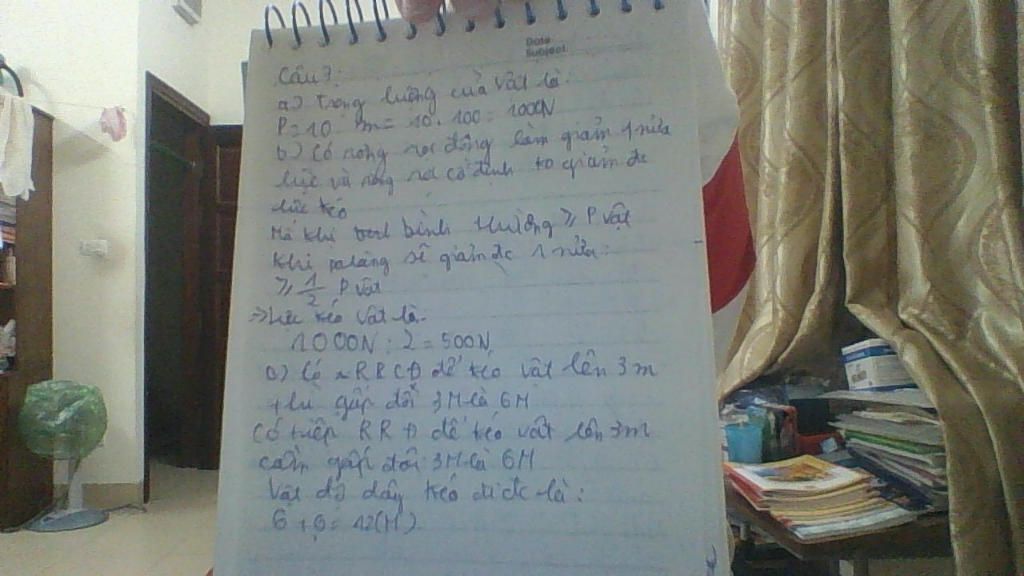 Date
Subject
Câu 3:
a) Trọng lượng của vật là:
P = 10 m = 10 . 100 = 1000N
b) Có ròng rọc động làm giảm 1 nửa
lực và ròng rọc cố định ko giảm đc
lực kéo
Mà khi bình thường ≥ P vật
khi palăng sẽ giảm đc 1 nửa:
≥ 1/2 P vật
=> Lực kéo vật là:
1000N : 2 = 500N
c) Có RRCĐ để kéo vật lên 3m
gấp đôi 3M là 6M
Có tiếp RRĐ để kéo vật lên 3m
cần gấp đôi 3M là 6M
Vật đó dây kéo đi đc là:
6 + 6 = 12(M)